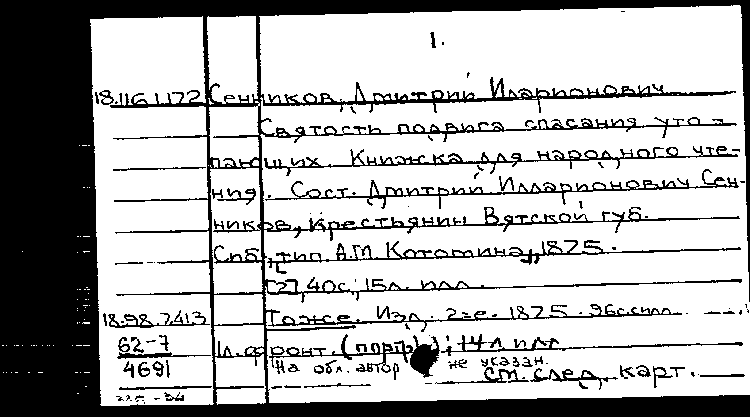 1.
18.116.1.172 Сенников, Дмитрий Иларионович
Святость подвига спасания уто=
пающих. Книжска для народного чте-
ния. Сост. Дмитрий Илларионович Сен-
ников, крестьянин Вятской губ.
Спб, тип. А.М. Котомина, 1875.
[2], 40с., 15л. илл.
18.98.7.413 Тоже. Изд. 2-ое. 1875. 96с. илл
62-7 1л. фронт. (портр.); 14 л илл
4691 На обл. автор не указан.
см. след. карт.